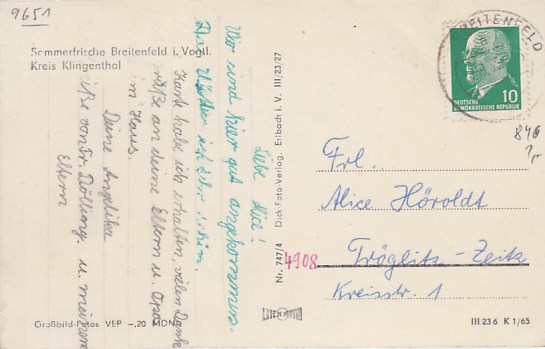 9651
Sommerfrische Breitenfeld i. Vogtl.
Kreis Klingenthal
Liebe Alice!
Wir sind hier gut angekommen.
Das Wetter ist sehr schön.
Karte habe ich erhalten, vielen Dank
Grüße an deine Eltern u. Opa
im Haus.
Deine Angelika
Grüße von Fr. Dölling u. meinen
Eltern
Großbild-Fotos VEP -,20 MDN
Nr. 747/4 Dick Foto-Verlag, Erlbach i. V. III/23/27
BREITENFELD
10
DEUTSCHE
DEMOKRATISCHE REPUBLIK
846
Frl.
Alice Höroldt
4908 Tröglitz-Zeitz
Kreisstr. 1
III 23 6 K 1/65